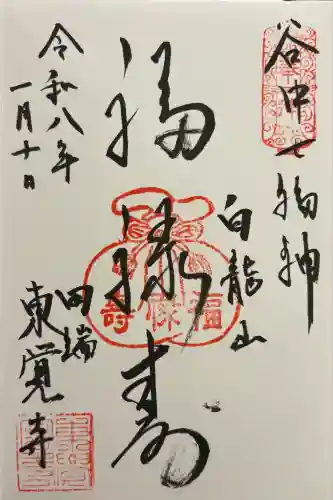 谷中七福神
白龍山
福禄寿
田端
東覚寺
令和八年
一月十日
福禄寿